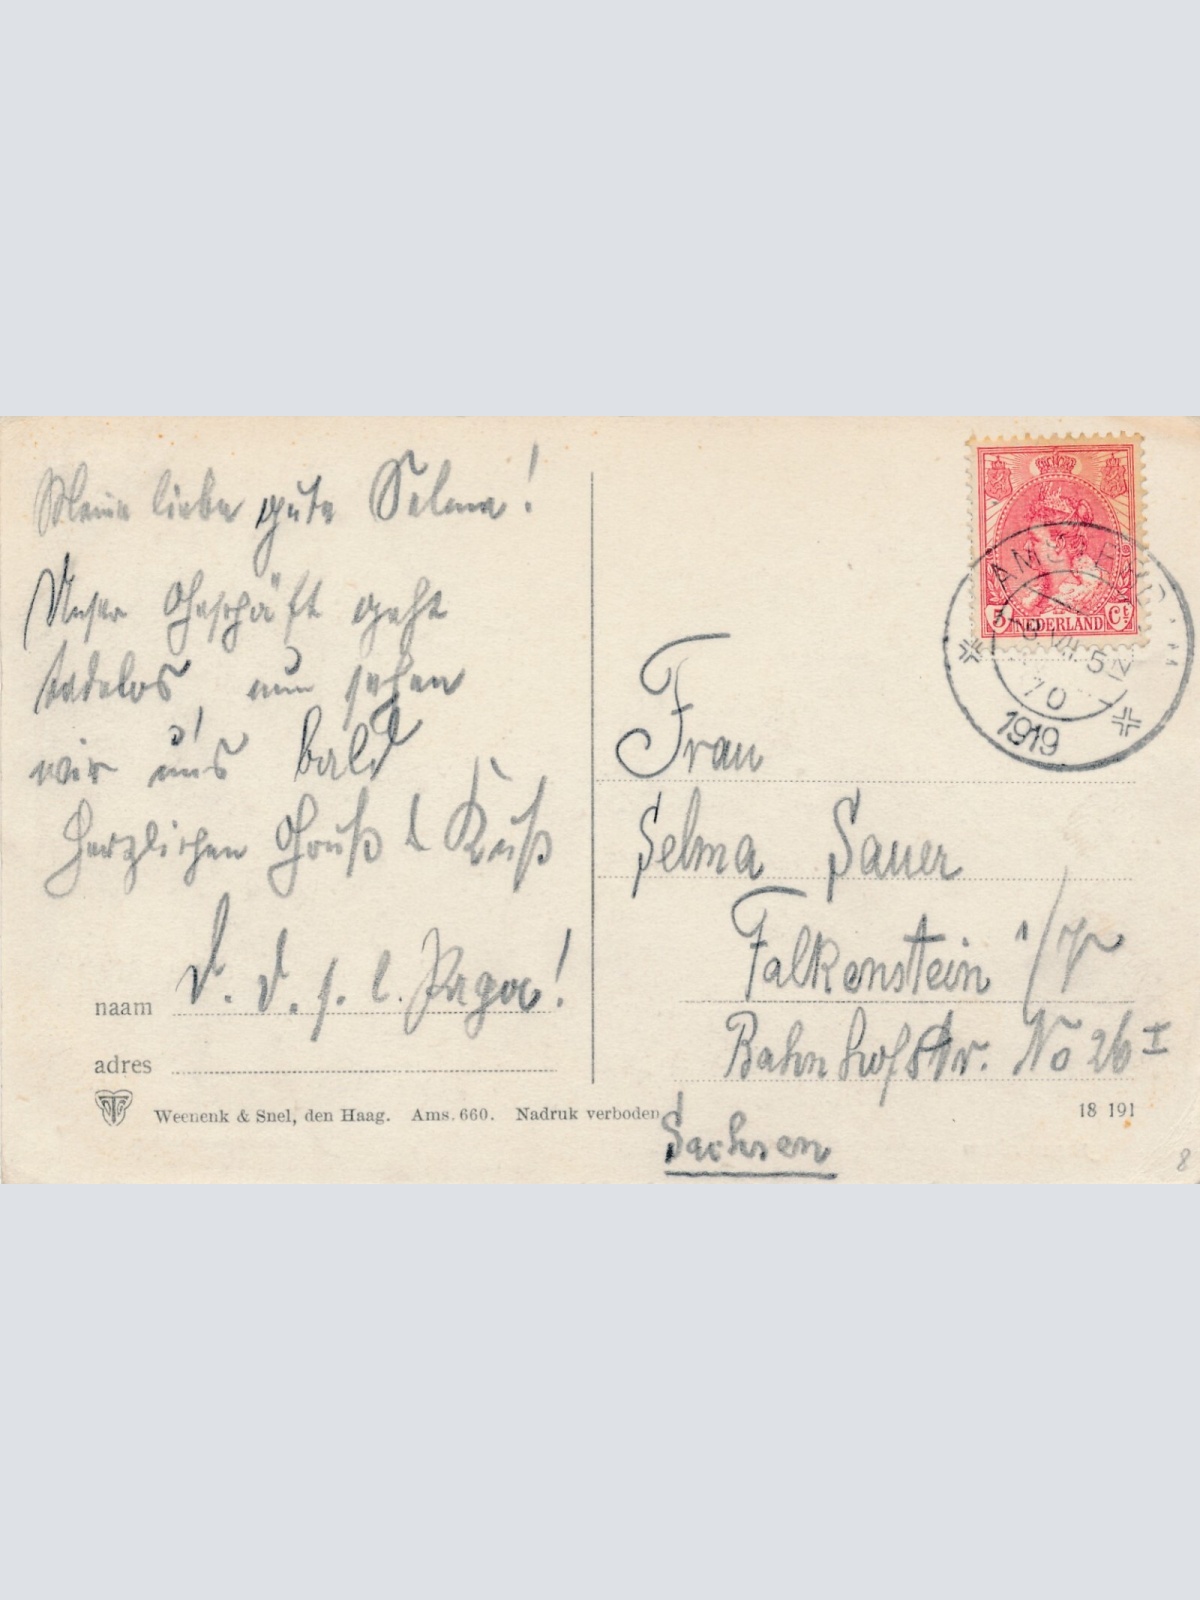 Meine liebe gute Selma!
Unser Geschäft geht
tadellos nun sehen
wir uns bald
Herzlichen Gruß & Kuß
D. D. s. l. Papa!
naam
adres
Weenenk & Snel, den Haag. Ams. 660. Nadruk verboden
AMSTERDAM
5 NEDERLAND Ct
1919
Frau
Selma Sauer
Falkenstein i/V
Bahnhofstr. No 26 I
18 191
Sachsen
8